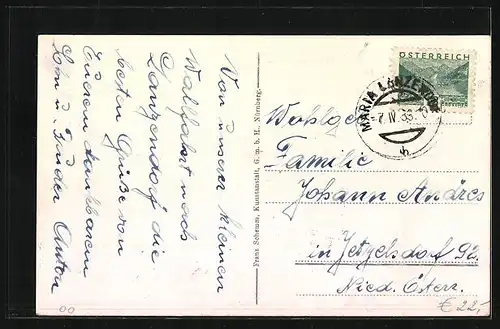 Von unserer kleinen
Wallfahrt nach
Lanzendorf die
besten Grüße von
Eurem dankbaren
Sohn u. Bruder Anton
Franz Schemm, Kunstanstalt, G. m. b. H., Nürnberg.
ÖSTERREICH
MARIA LANZENDORF
-7.IV.33.
b
Wohlgeb.
Familie
Johann Andres
in Jetzelsdorf 92.
Nied. Österr.
€ 22,-
00